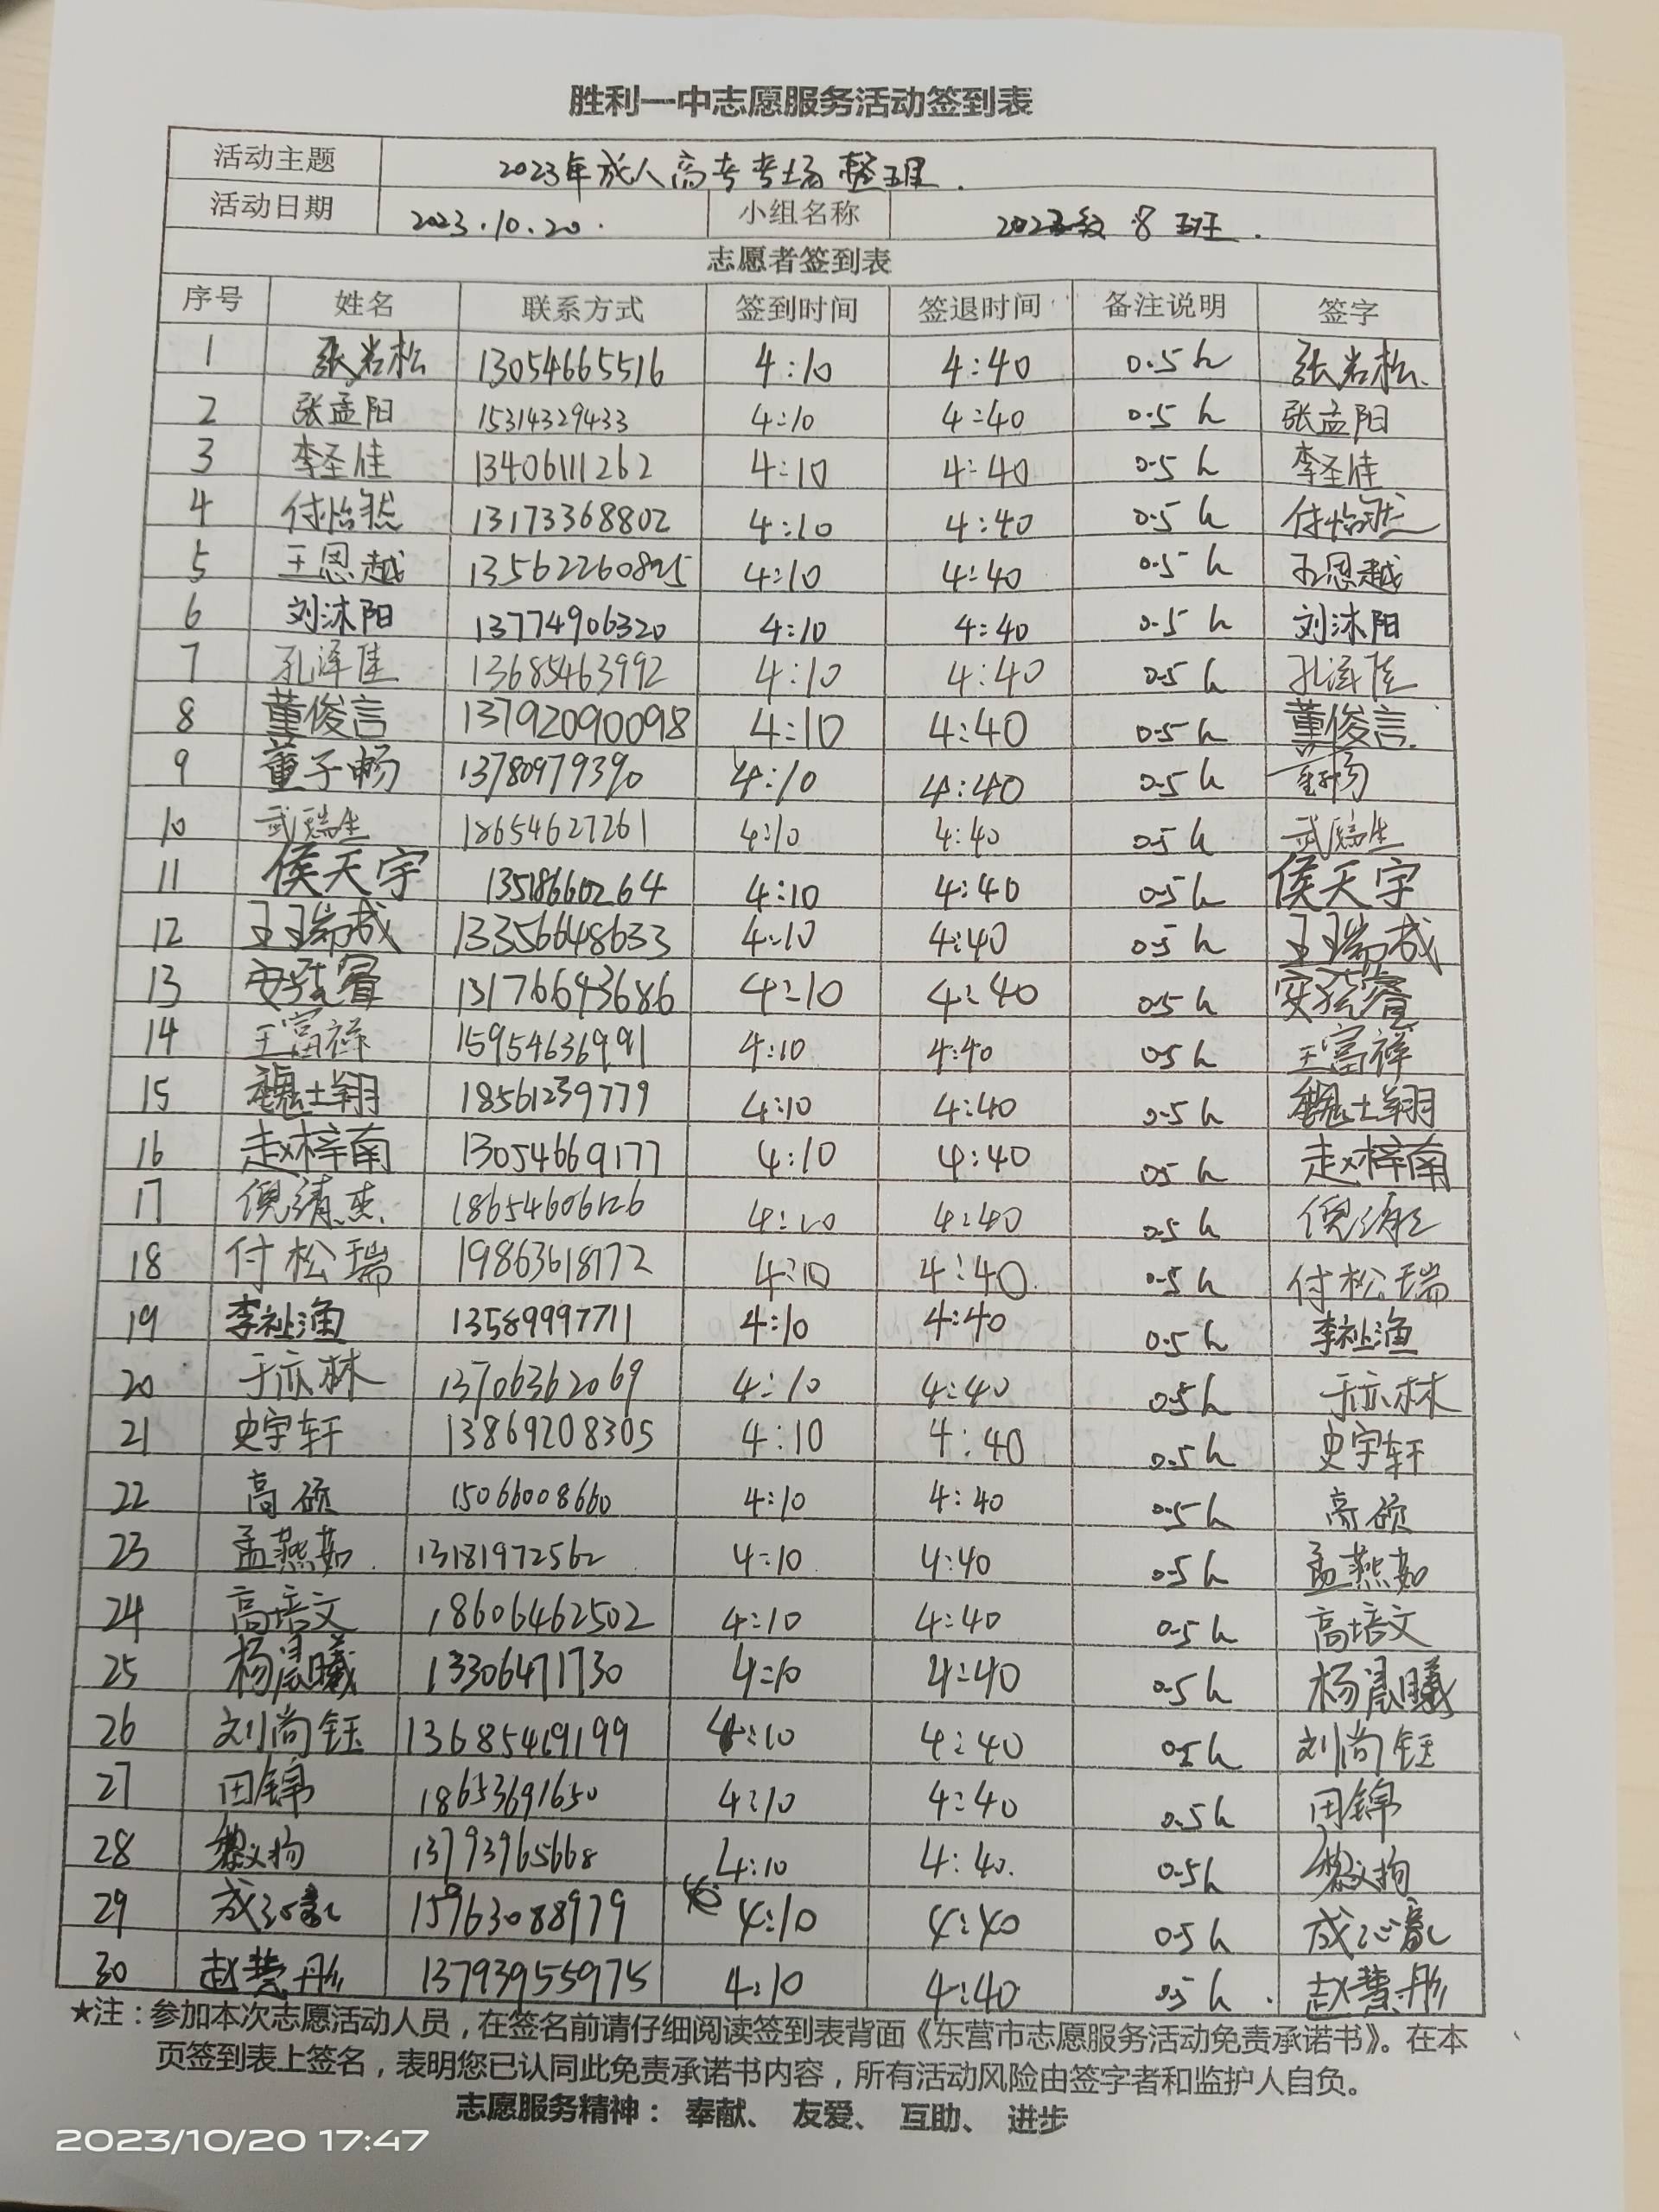 胜利一中志愿服务活动签到表
活动主题 2023年成人高考考场整理.
活动日期 2023.10.20. 小组名称 2023级8班.
志愿者签到表
序号 姓名 联系方式 签到时间 签退时间 备注说明 签字
1 张岩松 13054665516 4:10 4:40 0.5h 张岩松.
2 张孟阳 15314329433 4:10 4:40 0.5h 张孟阳
3 李圣佳 13406111262 4:10 4:40 0.5h 李圣佳
4 付怡然 13173368802 4:10 4:40 0.5h 付怡然
5 王恩越 13562260895 4:10 4:40 0.5h 王恩越
6 刘沐阳 13774906320 4:10 4:40 0.5h 刘沐阳
7 孔泽佳 13685463992 4:10 4:40 0.5h 孔泽佳
8 董俊言 13792090098 4:10 4:40 0.5h 董俊言.
9 董子畅 13780979390 4:10 4:40 0.5h
10 武瑞生 18654627261 4:10 4:40 0.5h 武瑞生
11 侯天宇 13518660264 4:10 4:40 0.5h 侯天宇
12 王瑞成 13356648633 4:10 4:40 0.5h 王瑞成
13 13176643686 4:10 4:40 0.5h
14 王富祥 15954636991 4:10 4:40 0.5h 王富祥
15 魏士翔 18561239779 4:10 4:40 0.5h 魏士翔
16 赵梓南 13054669177 4:10 4:40 0.5h 赵梓南
17 18654606126 4:10 4:40 0.5h
18 付松瑞 19863618772 4:10 4:40 0.5h 付松瑞
19 李祉渔 13589997711 4:10 4:40 0.5h 李祉渔
20 于亦林 13706362069 4:10 4:40 0.5h 于亦林
21 史宇轩 13869208305 4:10 4:40 0.5h 史宇轩
22 高硕 15066008660 4:10 4:40 0.5h 高硕
23 孟燕茹 13181972562 4:10 4:40 0.5h 孟燕茹
24 高培文 18606462502 4:10 4:40 0.5h 高培文
25 杨晨曦 13306471730 4:10 4:40 0.5h 杨晨曦
26 刘尚钰 13685469199 4:10 4:40 0.5h 刘尚钰
27 田锦 18653691650 4:10 4:40 0.5h 田锦
28 13793965668 4:10 4:40. 0.5h
29 15963088979 4:10 4:40 0.5h
30 赵慧彤 13793955975 4:10 4:40 0.5h. 赵慧彤
★注：参加本次志愿活动人员，在签名前请仔细阅读签到表背面《东营市志愿服务活动免责承诺书》。在本
页签到表上签名，表明您已认同此免责承诺书内容，所有活动风险由签字者和监护人自负。
志愿服务精神： 奉献、 友爱、 互助、 进步
2023/10/20 17:47